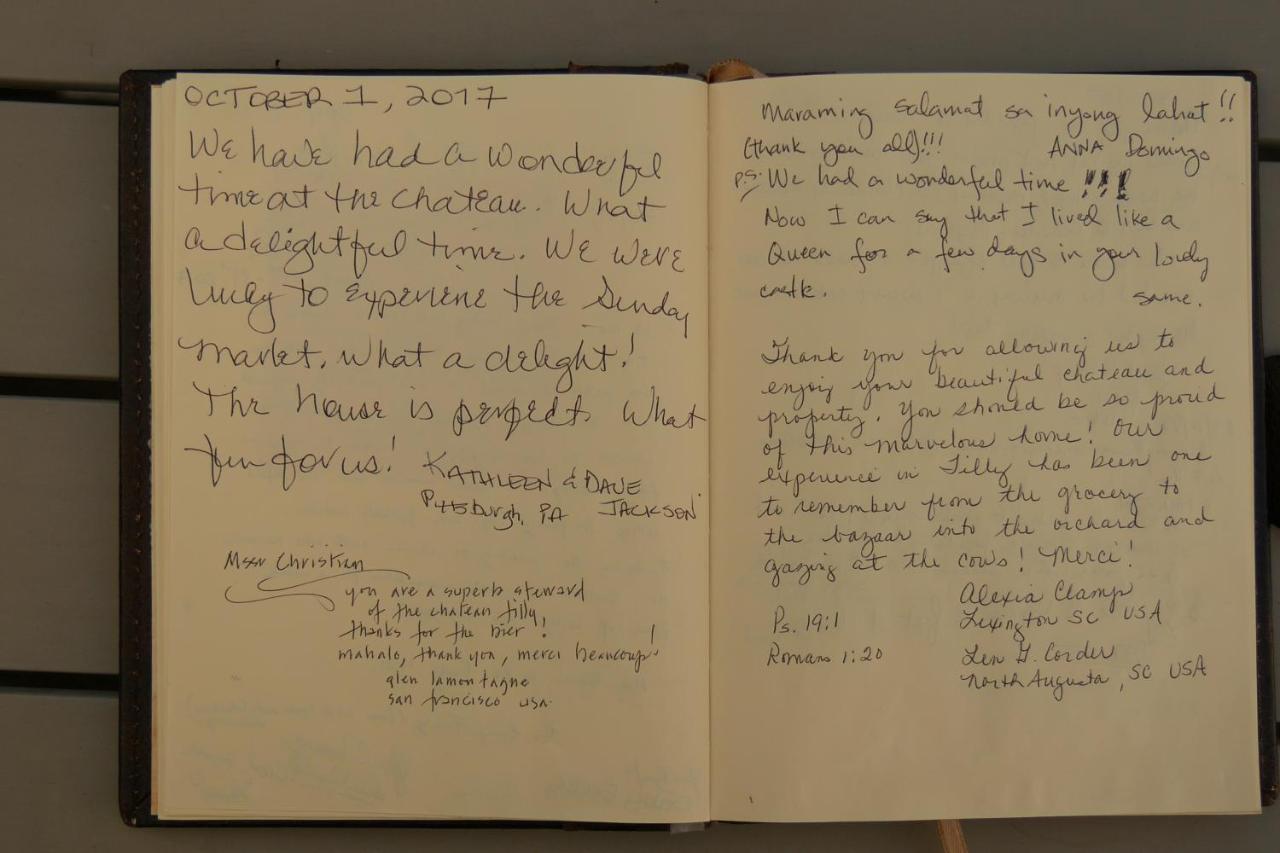 OCTOBER 1, 2017
We have had a wonderful
time at the chateau. What
a delightful time. We were
lucky to experiene the Sunday
market. What a delight!
The house is perfect. What
fun for us! KATHLEEN & DAVE
Pittsburgh, PA JACKSON
Mssr Christian
you are a superb steward
of the chateau tilly
thanks for the bier!
mahalo, thank you, merci beaucoup!
glen lamontagne
san francisco usa.
Maraming salamat sa inyong lahat!!
(thank you all)!!! ANNA Domingo
P.S. We had a wonderful time!!!
Now I can say that I lived like a
Queen for a few days in your lovely
castle. same.
Thank you for allowing us to
enjoy your beautiful chateau and
property. You should be so proud
of this marvelous home! Our
experience in Tilly has been one
to remember from the grocery to
the bazaar into the orchard and
gazing at the cows! Merci!
Alexia Clamp
Ps. 19:1 Lexington SC USA
Romans 1:20 Len G. Corder
North Augusta, SC USA